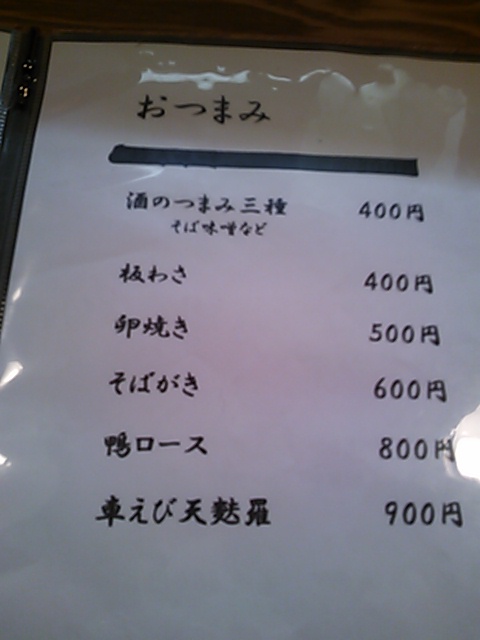 おつまみ
酒のつまみ三種 400円
そば味噌など
板わさ 400円
卵焼き 500円
そばがき 600円
鴨ロース 800円
車えび天麩羅 900円